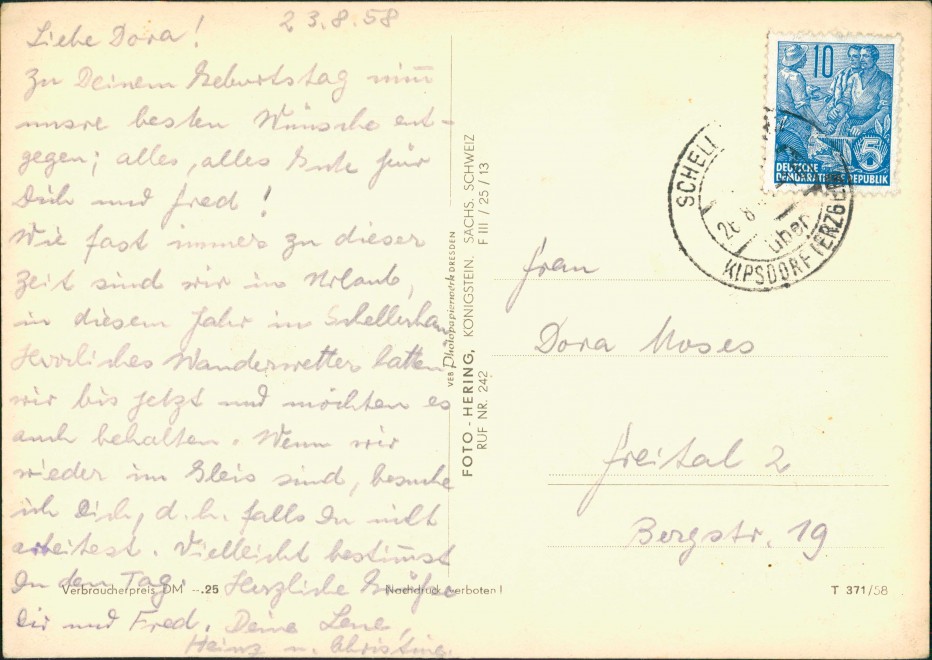 23.8.58
Liebe Dora!
Zu Deinem Geburtstag nim̄
unsre besten Wünsche ent-
gegen; alles, alles Gute für
Dich und Fred!
Wie fast immer zu dieser
Zeit sind wir im Urlaub,
in diesem Jahr in Schellerhau
Herrliches Wanderwetter hatten
wir bis jetzt und möchten es
auch behalten. Wenn wir
wieder im Gleis sind, besuche
ich Dich, d.h. falls Du nicht
arbeitest. Vielleicht bestim̄st
Du den Tag. Herzliche Grüße
Dir und Fred. Deine Lene,
Heinz u. Christine.
Verbraucherpreis DM --.25
Nachdruck verboten!
VEB Photopapierwerk DRESDEN
FOTO - HERING, KÖNIGSTEIN. SÄCHS. SCHWEIZ
RUF NR. 242 F III / 25 / 13
10
5
DEUTSCHE
DEMOKRATISCHE REPUBLIK
SCHELL
26 8
über
KIPSDORF (ERZGEB
Frau
Dora Moses
Freital 2
Bergstr. 19
T 371/58